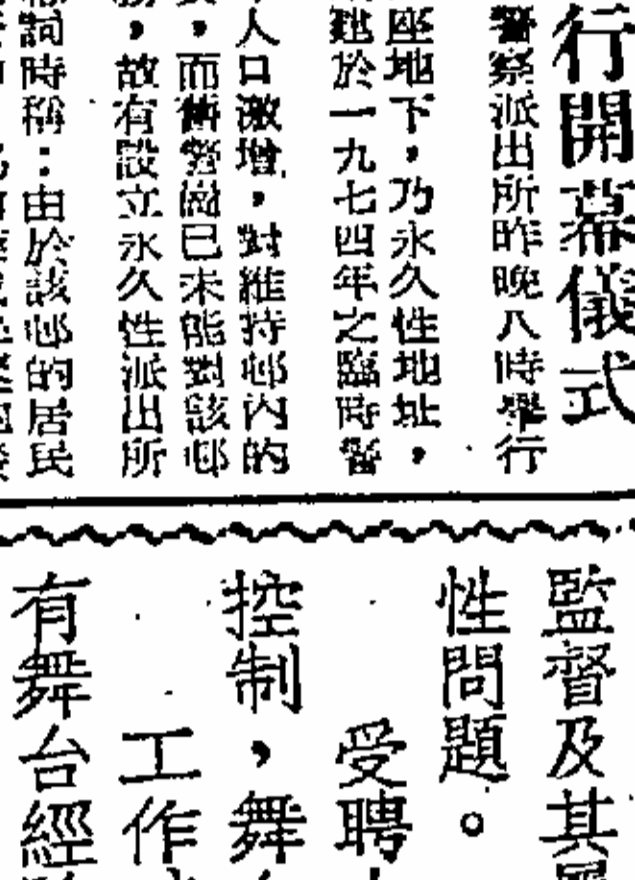 行開幕儀式
警察派出所昨晚八時舉行
座地下，乃永久性地址，
建於一九七四年之臨時警
人口激增，對維持邨內的
，而舊警崗已未能對該邨
，故有設立永久性派出所
詞時稱：由於該邨的居民
監督及其
性問題。
受聘
控制，舞
工作
有舞台經